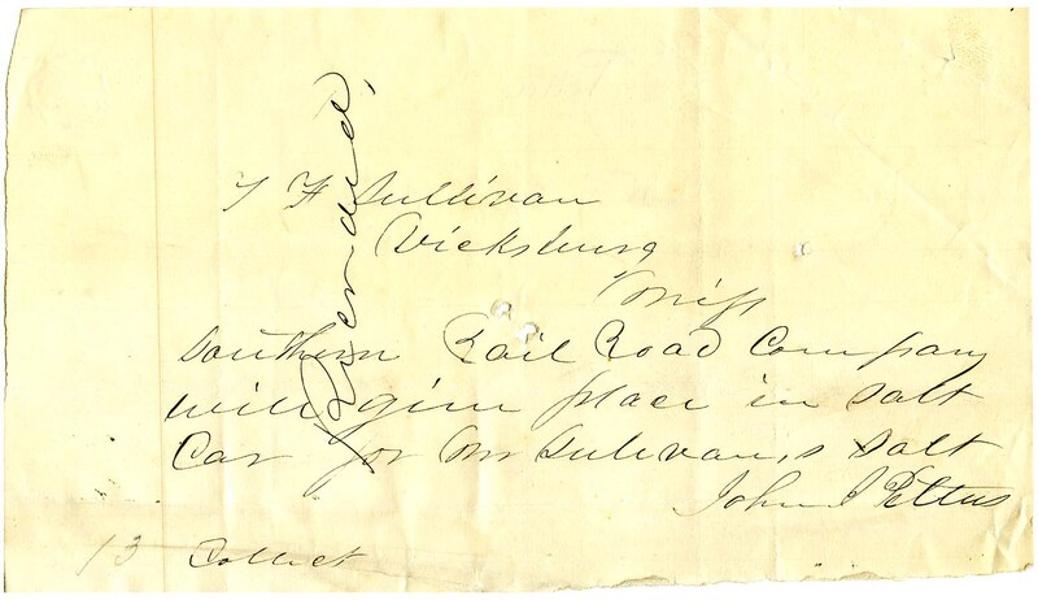 T F Sullivan
Vicksburg
Miss
Southern Rail Road Company
will give place in salt
Car for Mr Sulivan,s Salt
John J Pettus
13 Collect